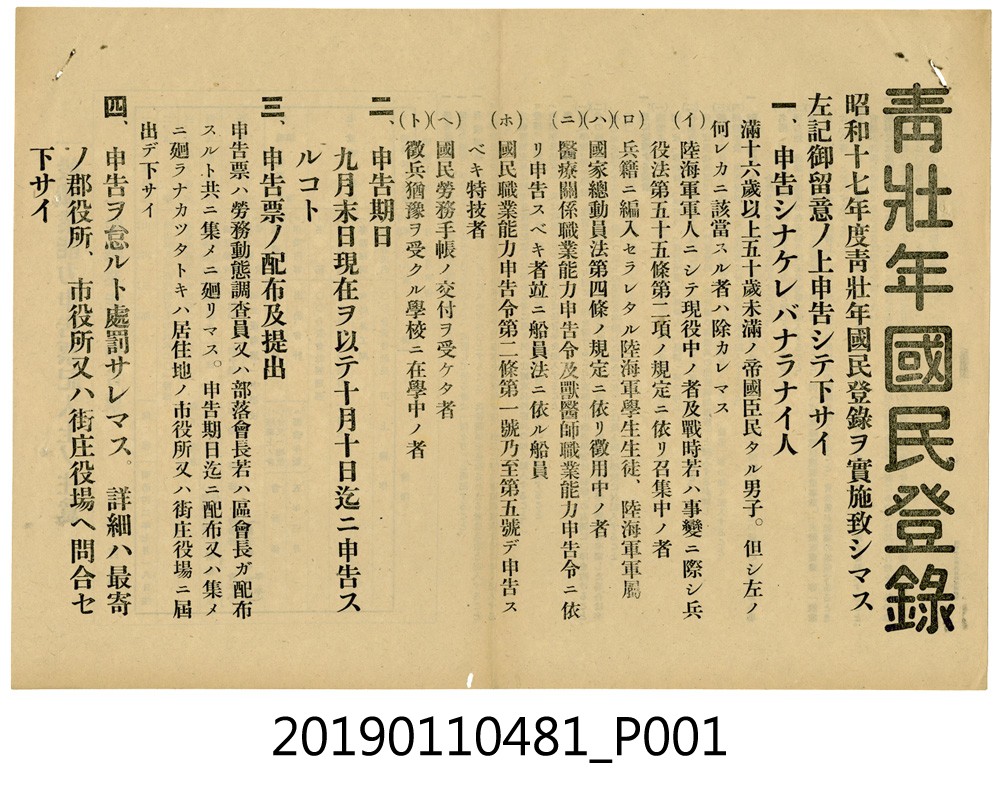 靑壯年國民登錄
昭和十七年度靑壯年國民登錄ヲ實施致シマス
左記御留意ノ上申告シテ下サイ
一、申告シナケレバナラナイ人
滿十六歲以上五十歲未滿ノ帝國臣民タル男子。但シ左ノ
何レカニ該當スル者ハ除カレマス
(イ)陸海軍軍人ニシテ現役中ノ者及戰時若ハ事變ニ際シ兵
役法第五十五條第二項ノ規定ニ依リ召集中ノ者
(ロ)兵籍ニ編入セラレタル陸海軍學生生徒、陸海軍軍屬
(ハ)國家總動員法第四條ノ規定ニ依リ徵用中ノ者
(ニ)醫療關係職業能力申告令及獸醫師職業能力申告令ニ依
リ申告スベキ者竝ニ船員法ニ依ル船員
(ホ)國民職業能力申告令第二條第一號乃至第五號デ申告ス
ベキ特技者
(ヘ)國民勞務手帳ノ交付ヲ受ケタ者
(ト)徵兵猶豫ヲ受クル學校ニ在學中ノ者
二、申告期日
九月末日現在ヲ以テ十月十日迄ニ申告ス
ルコト
三、申告票ノ配布及提出
申告票ハ勞務動態調査員又ハ部落會長若ハ區會長ガ配布
スルト共ニ集メニ廻リマス。申告期日迄ニ配布又ハ集メ
ニ廻ラナカツタトキハ居住地ノ市役所又ハ街庄役場ニ屆
出デ下サイ
四、申告ヲ怠ルト處罰サレマス。詳細ハ最寄
ノ郡役所、市役所又ハ街庄役場ヘ問合セ
下サイ
20190110481_P001